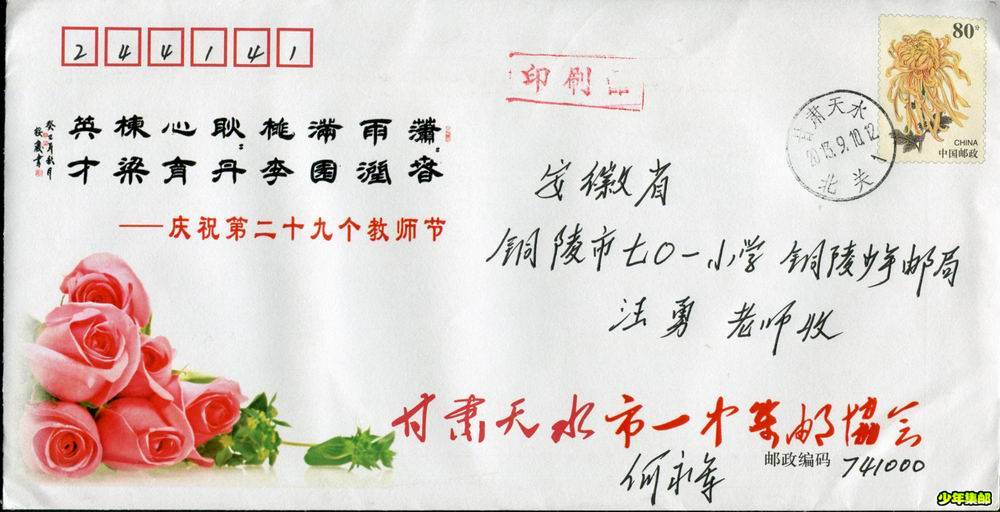 244141
印刷品
80分
CHINA
中国邮政
甘肃天水
2013.9.10.12
北关 1
潇：春
雨润
满园
桃李
耿：丹
心育
栋梁
英才
癸巳年秋月
——庆祝第二十九个教师节
安徽省
铜陵市七〇一小学 铜陵少年邮局
汪勇 老师收
甘肃天水市一中集邮協会
邮政编码 741000
少年集邮